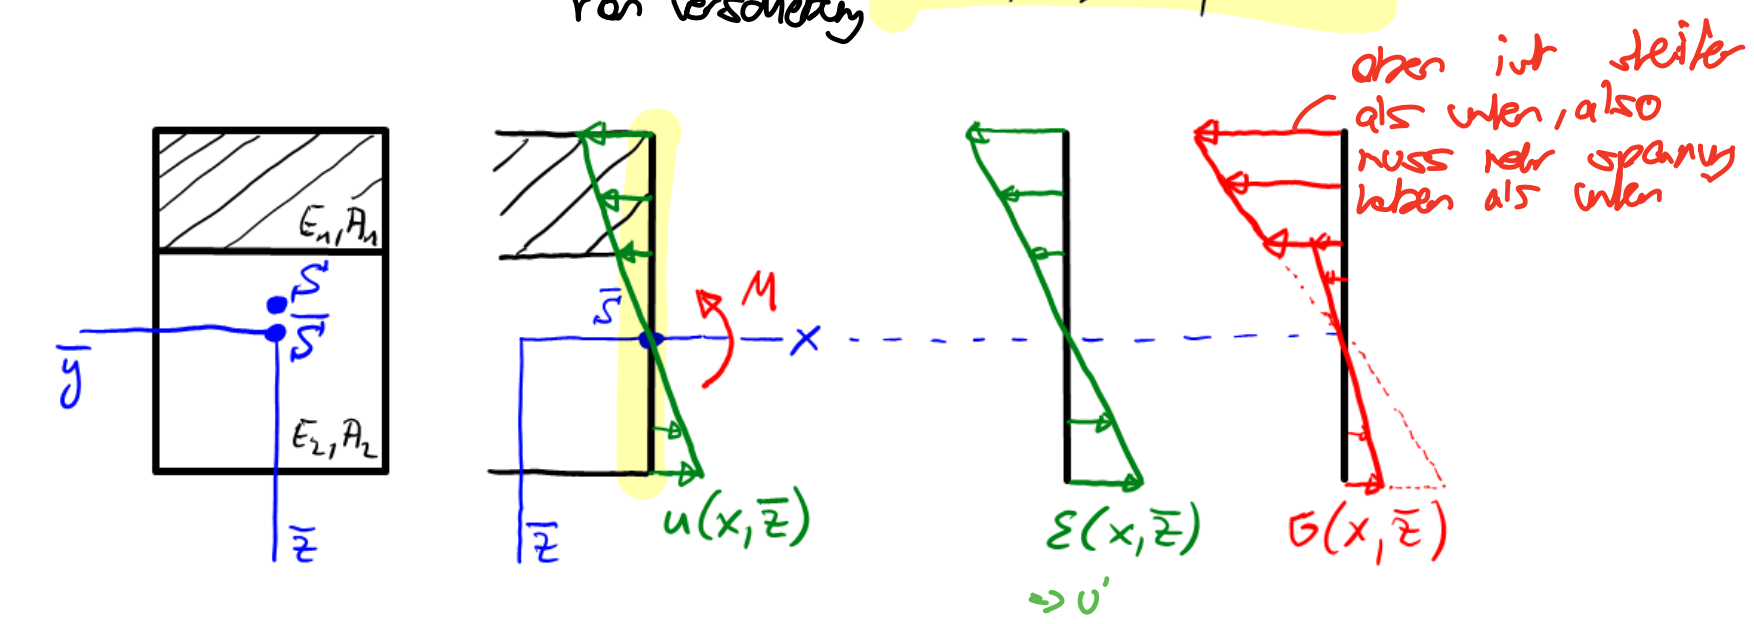 von Verschiebung
oben ist steifer
als unten, also
muss mehr spannung
haben als unten
E₁, A₁
S
S̅
y̅
E₂, A₂
z̅
S̅
M
x
z̅
u(x, z̅)
ε(x, z̅)
=> u'
σ(x, z̅)